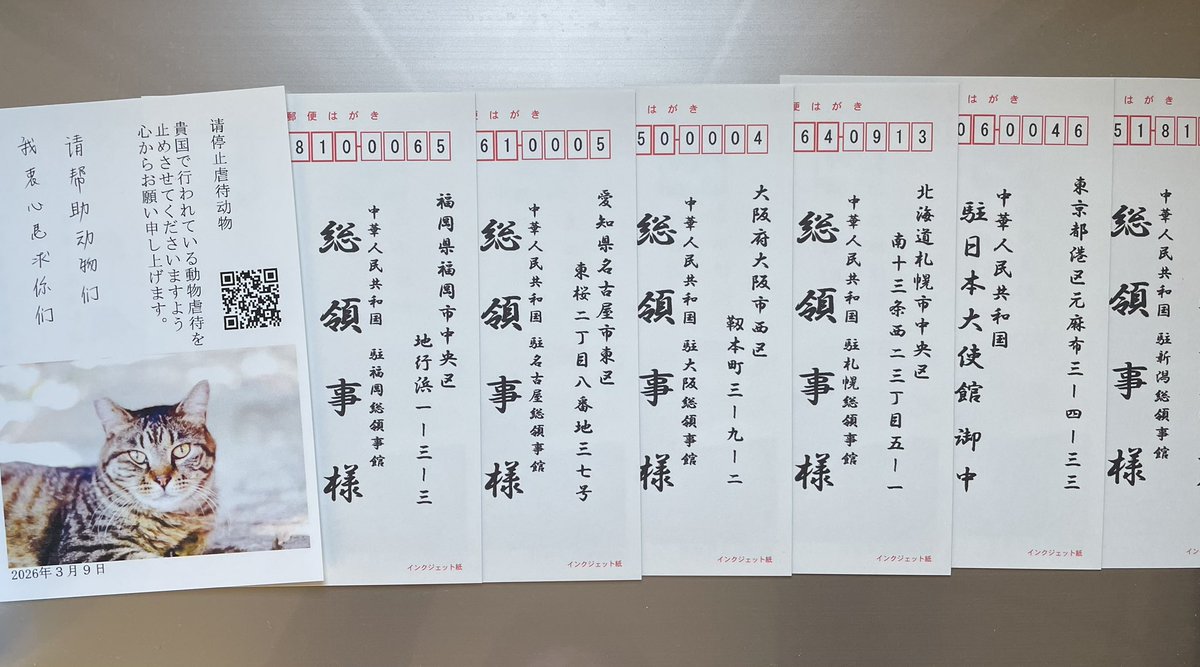 请停止虐待动物
貴国で行われている動物虐待を
止めさせてくださいますよう
心からお願い申し上げます。
请帮助动物们
我衷心恳求你们
2026年3月9日
郵便はがき
810-0065
福岡県福岡市中央区
地行浜一ー三ー三
中華人民共和国 駐福岡総領事館
総領事様
インクジェット紙
便はがき
61-0005
愛知県名古屋市東区
東桜二丁目八番地三七号
中華人民共和国 駐名古屋総領事館
総領事様
インクジェット紙
はがき
50-0004
大阪府大阪市西区
靱本町三ー九ー二
中華人民共和国 駐大阪総領事館
総領事様
インクジェット紙
便はがき
64-0913
北海道札幌市中央区
南十三条西二三丁目五ー一
中華人民共和国 駐札幌総領事館
総領事様
インクジェット紙
はがき
06-0046
東京都港区元麻布三ー四ー三三
中華人民共和国
駐日本大使館御中
インクジェット紙
はがき
51-81
中華人民共和国 駐新潟総領事館
総領事様